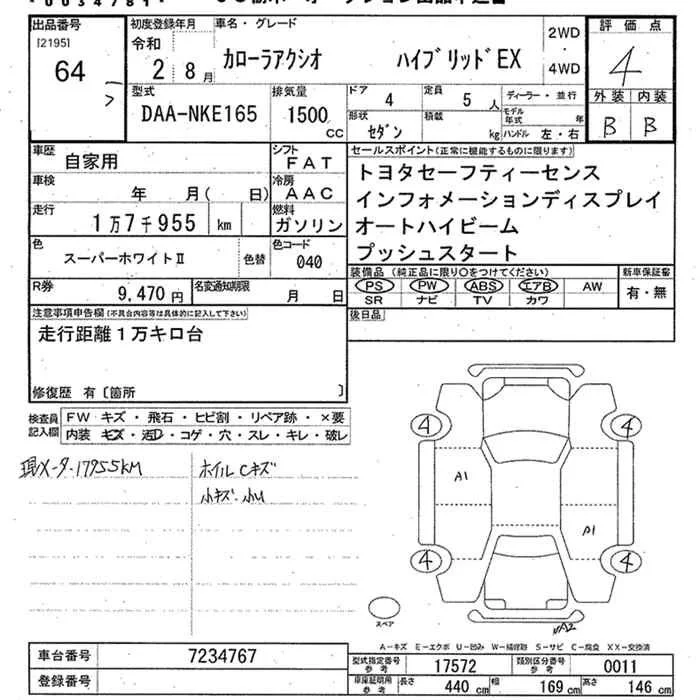 出品番号
[2195]
64
初度登録年月
令和
2 8月
車名・グレード
カローラアクシオ ハイブリッドEX
2WD
4WD
評価点
4
外装 内装
B B
型式
DAA-NKE165
排気量
1500
CC
ドア
4
定員
5 人
形状
セダン
積載
kg
ディーラー・並行
モデル年式 年
ハンドル 左・右
車歴
自家用
シフト
FAT
車検
年 月( 日)
冷房
AAC
走行
1万7千955 km
燃料
ガソリン
色
スーパーホワイトⅡ
色替
色コード
040
R券
9,470 円
名変通知期限
月 日
セールスポイント(正常に機能するものに限ります)
トヨタセーフティーセンス
インフォメーションディスプレイ
オートハイビーム
プッシュスタート
装備品(純正品に限り○をつけてください)
PS PW ABS エアB AW
SR ナビ TV カワ
新車保証書
有・無
後日品
注意事項申告欄(不具合内容等は具体的に記入して下さい)
走行距離1万キロ台
修復歴 有〔箇所 〕
検査員記入欄
FW キズ・飛石・ヒビ割・リペア跡・×要
内装 キズ・汚れ・コゲ・穴・スレ・キレ・破レ
現メーター17955KM
ホイルCキズ
小キズ・小U
4
4
A1
A1
4
4
スペア
A2
A-キズ E-エクボ U-凹み W-補修跡 S-サビ C-腐食 XX-交換済
車台番号
7234767
登録番号
型式指定番号
参考
17572
類別区分番号
参考
0011
車庫証明用
参考
長さ
440 cm
幅
169 cm
高さ
146 cm